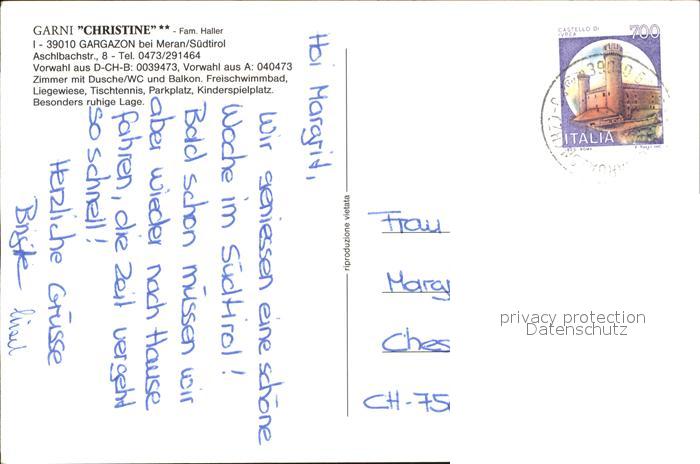 GARNI "CHRISTINE" ** - Fam. Haller
I - 39010 GARGAZON bei Meran/Südtirol
Aschlbachstr., 8 - Tel. 0473/291464
Vorwahl aus D-CH-B: 0039473, Vorwahl aus A: 040473
Zimmer mit Dusche/WC und Balkon. Freischwimmbad,
Liegewiese, Tischtennis, Parkplatz, Kinderspielplatz.
Besonders ruhige Lage.
Hoi Margrit,
Wir geniessen eine schöne
Woche im Südtirol!
Bald schon müssen wir
aber wieder nach Hause
fahren, die Zeit vergeht
so schnell!
Herzliche Grüsse
Brigitte
riproduzione vietata
CASTELLO DI
IVREA
700
ITALIA
Frau
Marg
Ches
CH-75
privacy protection
Datenschutz